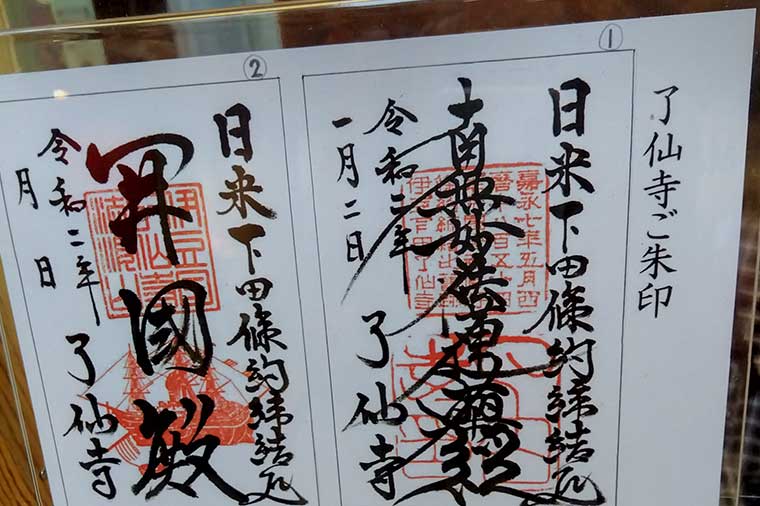 了仙寺ご朱印
①
日米下田條約締結処
南無妙法蓮華経
令和二年
一月二日
了仙寺
②
日米下田條約締結処
開國殿
令和二年
月 日
了仙寺